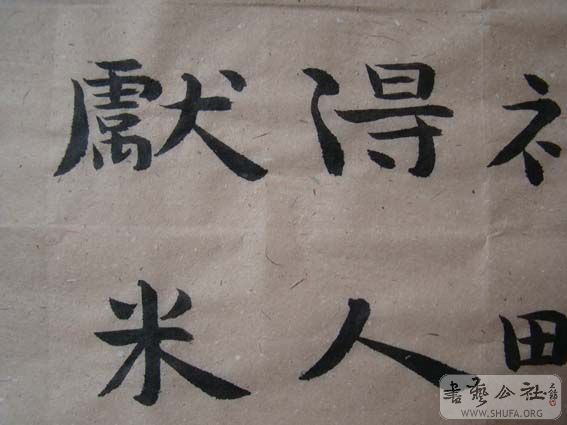 田
得人
獻米
書藝公社
WWW.SHUFA.ORG